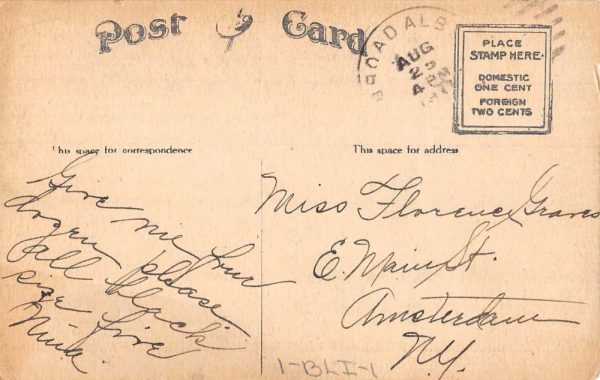 Post Card
BROADALB
AUG
23
4 PM
PLACE
STAMP HERE.
DOMESTIC
ONE CENT
FOREIGN
TWO CENTS
This space for correspondence
This space for address
Give me four
dozen please
all black
size five
Miss Florence Graves
E. Main St.
Amsterdam
N.Y.
1-BLI-1